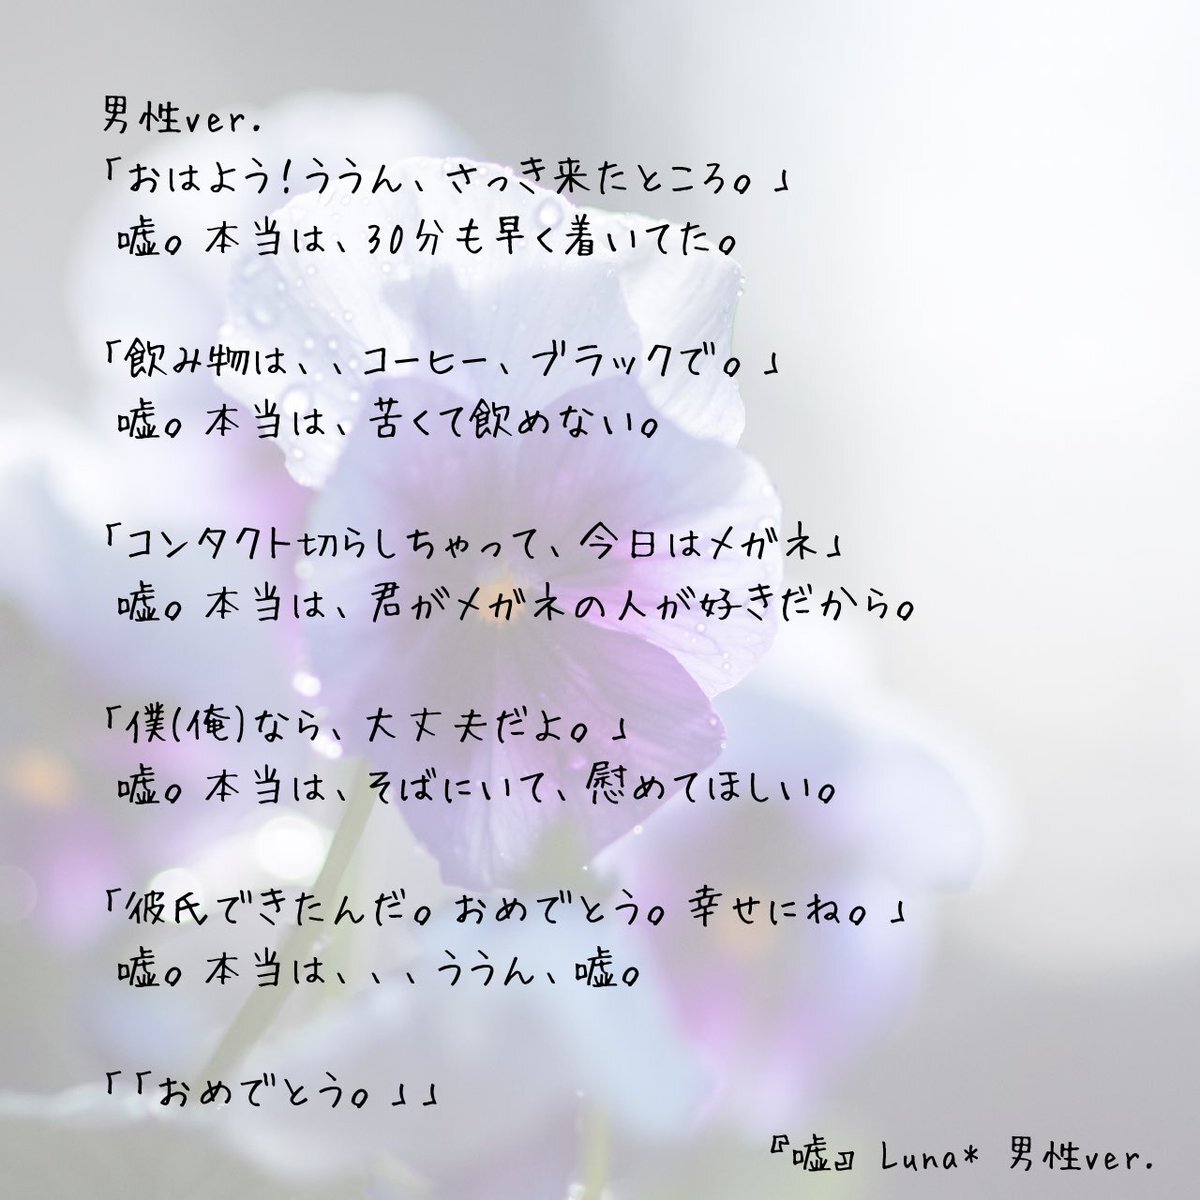 男性ver.
「おはよう！ううん、さっき来たところ。」
嘘。本当は、30分も早く着いてた。
「飲み物は、、コーヒー、ブラックで。」
嘘。本当は、苦くて飲めない。
「コンタクト切らしちゃって、今日はメガネ」
嘘。本当は、君がメガネの人が好きだから。
「僕(俺)なら、大丈夫だよ。」
嘘。本当は、そばにいて、慰めてほしい。
「彼氏できたんだ。おめでとう。幸せにね。」
嘘。本当は、、、ううん、嘘。
「「おめでとう。」」
『嘘』 Luna* 男性ver.